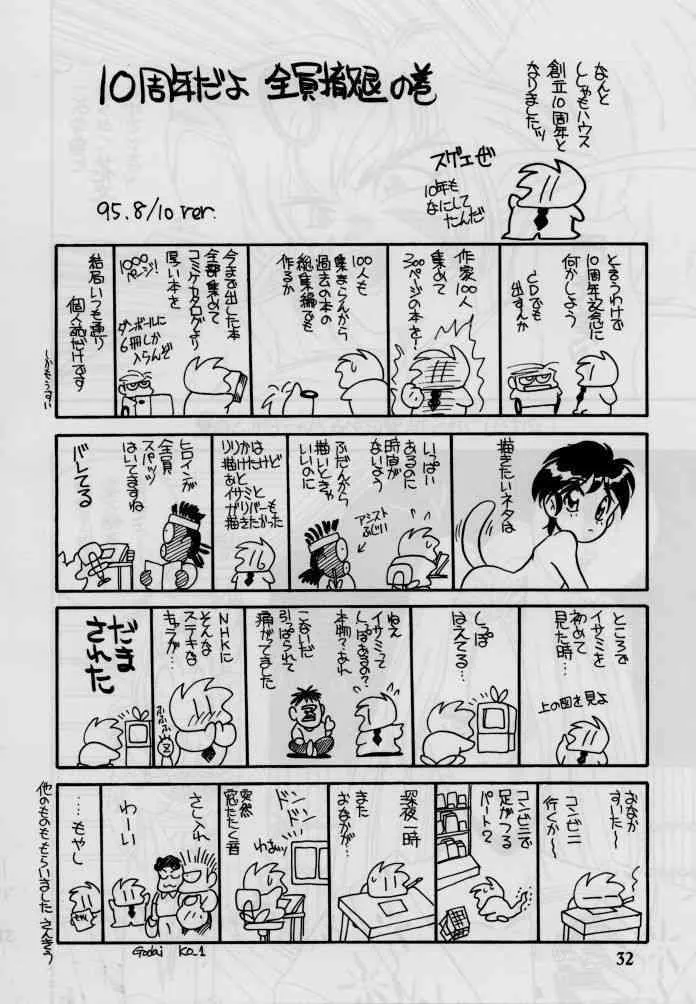 10周年だよ 全員撤退の巻
95.8/10 ver.
なんと
ししゃもハウス
創立10周年と
なりましたッ
スゲェぜ
10年も
なにして
たんだ
と言うわけで
10周年記念に
何かしよう
CDでも
出すんか
作家100人
集めて
300ページの本を!
100人も
集まらんから
過去の本の
総集編でも
作るか
今まで出した本
全部集めて
コミケカタログより
厚い本を
1000ページ!
ダンボールに
6冊しか
入らんぞ
結局いつも通り
個人誌だけです
しかもうすい
描きたいネタは
いっぱい
あるのに
時間が
ないよう
ふだんから
描いときゃ
いいのに
アシスト
ふじい
りりかは
描けたけど
あと
イサミと
ガリバーも
描きたかった
ヒロインが
全員
スパッツ
はいてますね
バレてる
ところで
イサミを
初めて
見た時…
上の図を見よ
しっぽ
はえてる…
ねえ
イサミって
しっぽあるの?
本物?あれ
こないだ
引っぱられて
痛がってました
NHKに
そんな
ステキな
キャラが…
ふふふ
だま
された
おなか
すいた〜
コンビニ
行くか〜
コンビニで
足がつる
パート2
深夜一時
また
おなかが…
ドンドンドン
突然
窓たたく音
わぁっ
さしいれ
わーい
……もやし
他のものももらいました さんきう
Godai Ko.1
32